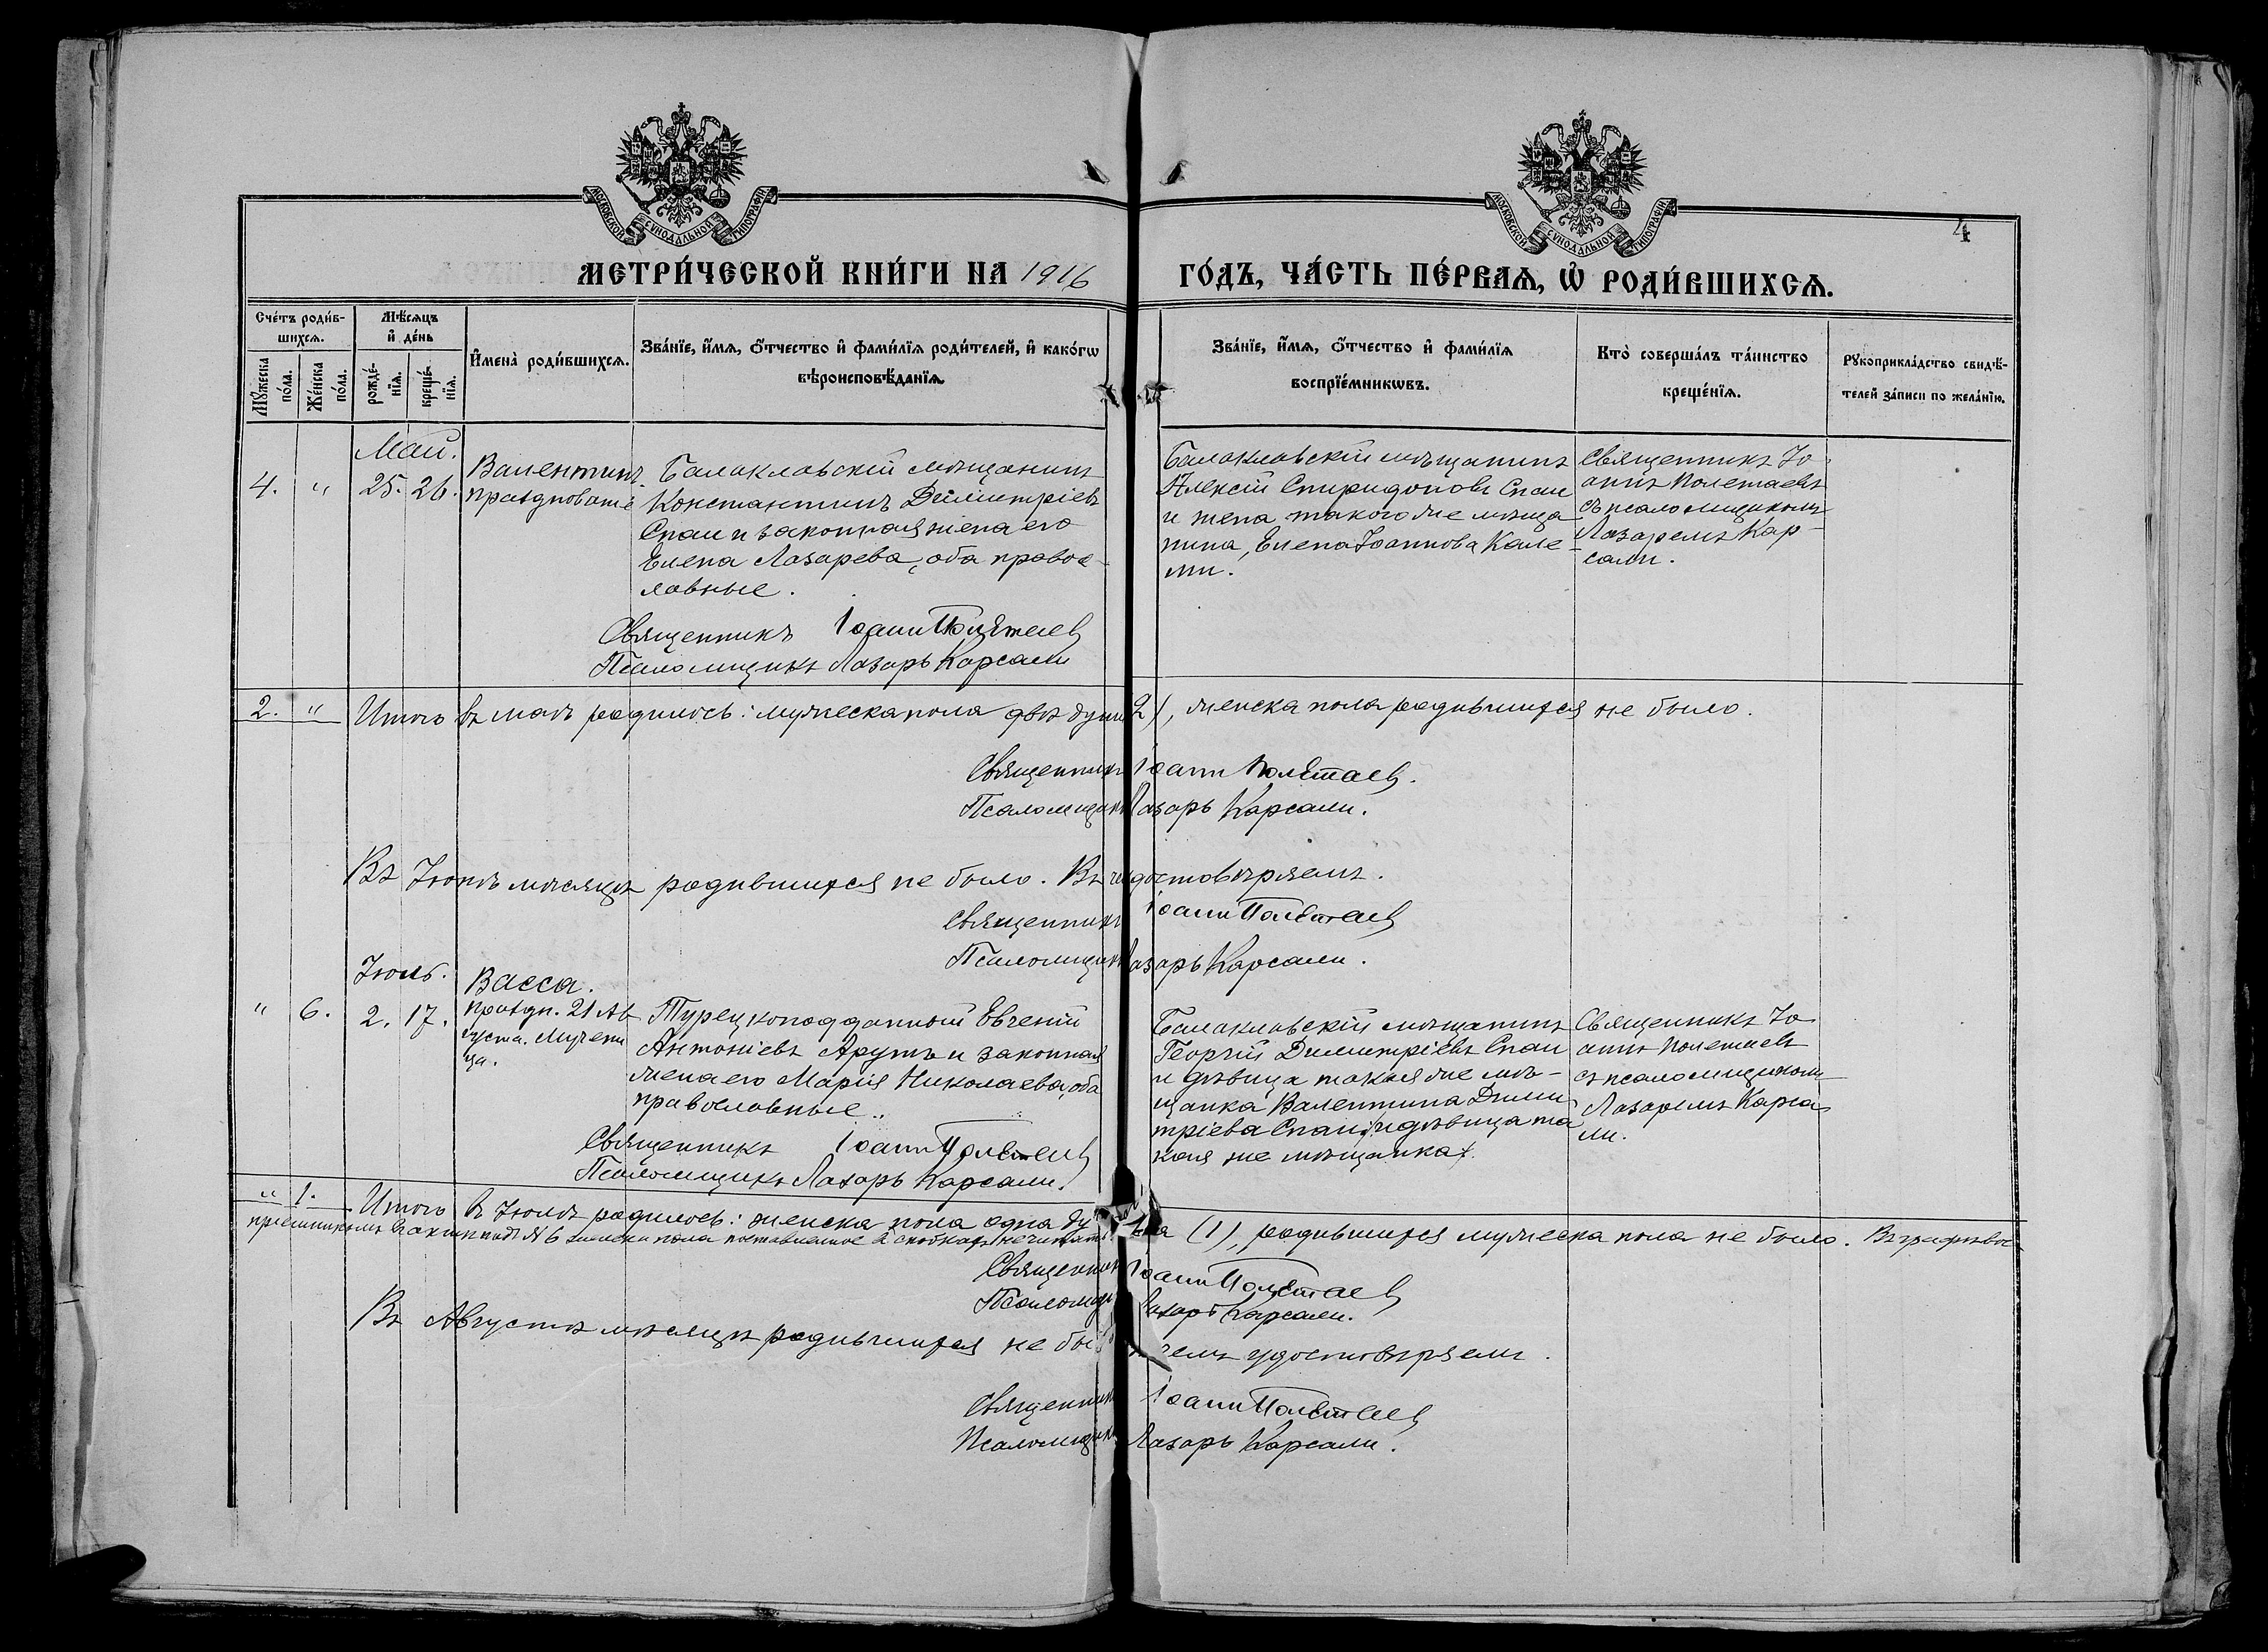 МОСКОВСКОЙ СѴНОДАЛЬНОЙ ТИПОГРАФІИ
МОСКОВСКОЙ СѴНОДАЛЬНОЙ ТИПОГРАФІИ
4
МЕТРИ́ЧЕСКОЙ КНИ́ГИ НА 1916 ГО́ДЪ, ЧА́СТЬ ПЕ́РВАЯ, Ѡ҆ РОДИ́ВШИХСЯ.
Сче́тъ роди́в-
шихсѧ.
Мꙋ́жеска
по́ла.
Же́нска
по́ла.
Мѣ́сѧцъ
и҆ де́нь
рожде́-
нїѧ.
креще́-
нїѧ.
И҆мена̀ роди́вшихсѧ.
Зва́нїе, и҆́мѧ, ѻ҆́тчество и҆ фами́лїѧ роди́телей, и҆ како́гѡ
вѣроисповѣ́данїѧ.
Зва́нїе, и҆́мѧ, ѻ҆́тчество и҆ фами́лїѧ
воспрїе́мникѡвъ.
Кто̀ соверша́лъ та́инство
креще́нїѧ.
Рꙋкоприкла́дство свидѣ́-
телей за́писи по жела́нїю.
Май.
4. " 25. 26.
Валентинъ.
празднованіе
Балаклавскій мѣщанинъ
Константинъ Димитріевъ
Спаи и законная жена его
Елена Лазарева, оба правос-
лавные.
Священникъ Іоаннъ Полетаевъ
Псаломщикъ Лазарь Карсали
Балаклавскій мѣщанинъ
Алексій Спиридоновъ Спаи
и жена такого же мѣща
нина, Елена Іоаннова Кале-
ми.
Священникъ Іо
аннъ Полетаевъ
съ псаломщикомъ
Лазаремъ Кар-
сали.
2. " Итого въ маѣ родилось: мужеска пола двѣ души (2), женска пола родившихся не было.
Священникъ Іоаннъ Полетаевъ.
Псаломщикъ Лазарь Карсали.
Въ Іюнѣ мѣсяцѣ родившихся не было. Въ чемъ удостовѣряемъ.
Священникъ Іоаннъ Полетаевъ
Псаломщикъ Лазарь Карсали.
Іюль.
" 6. 2. 17.
Васса.
праздн. 21 Ав
густа. Мучени
ца.
Турецкоподданный Евгеній
Антоніевъ Арутъ и законная
жена его Марія Николаева, оба
православные.
Священникъ Іоаннъ Полетаевъ
Псаломщикъ Лазарь Карсали.
Балаклавскій мѣщанинъ
Георгій Димитріевъ Спаи
и дѣвица такая же мѣ-
щанка Валентина Дими
тріева Спаи (и дѣвица та
кая же мѣщанка).
Священникъ Іо
аннъ Полетаевъ
съ псаломщикомъ
Лазаремъ Карса
ли.
" 1. Итого въ Іюлѣ родилось: женска пола одна душа (1), родившихся мужеска пола не было. Въ графѣ вос-
пріемниковъ въ актѣ подъ № 6 женска пола поставленное въ скобкахъ не читать.
Священникъ Іоаннъ Полетаевъ
Псаломщикъ Лазарь Карсали.
Въ Августѣ мѣсяцѣ родившихся не было въ чемъ удостовѣряемъ.
Священникъ Іоаннъ Полетаевъ
Псаломщикъ Лазарь Карсали.